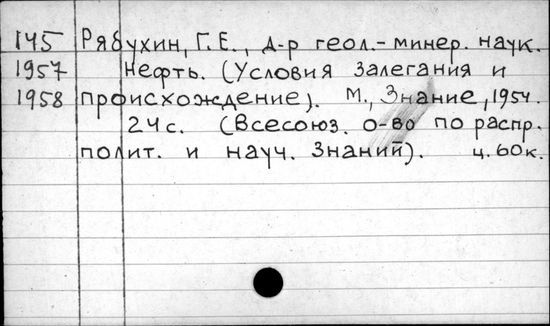 145 Рябухин, Г.Е., д-р геол.-минер. наук.
1957 Нефть. (Условия залегания и
1958 происхождение). М., Знание, 1954.
24с. (Всесоюз. о-во по распр.
полит. и науч. Знаний). ц. 60к.